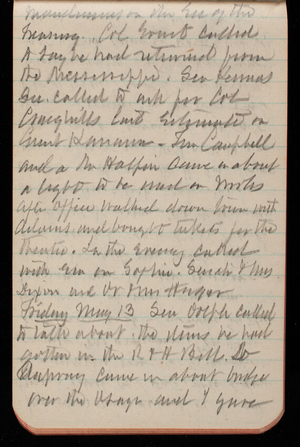 on the Sec of the
Treasury. Col Ernst called
to say he had returned from
the Mississippi. Gen
called to ask for Col
Craighills last Estimate on
Great Kanawha - Jim Campbell
and a Mr Halpin came in about
a light to be used on works
after office walked down town with
Adams and bought tickets for the
theatre. In the Evening called
with Em on Sophie. Sarah & Mrs
Dixon and Dr & Mrs Hager
Friday May 13 Sen Dolph called
to talk about the items he had
gotten in the R & H Bill. Do
came in about bridge
over the Osage and I gave